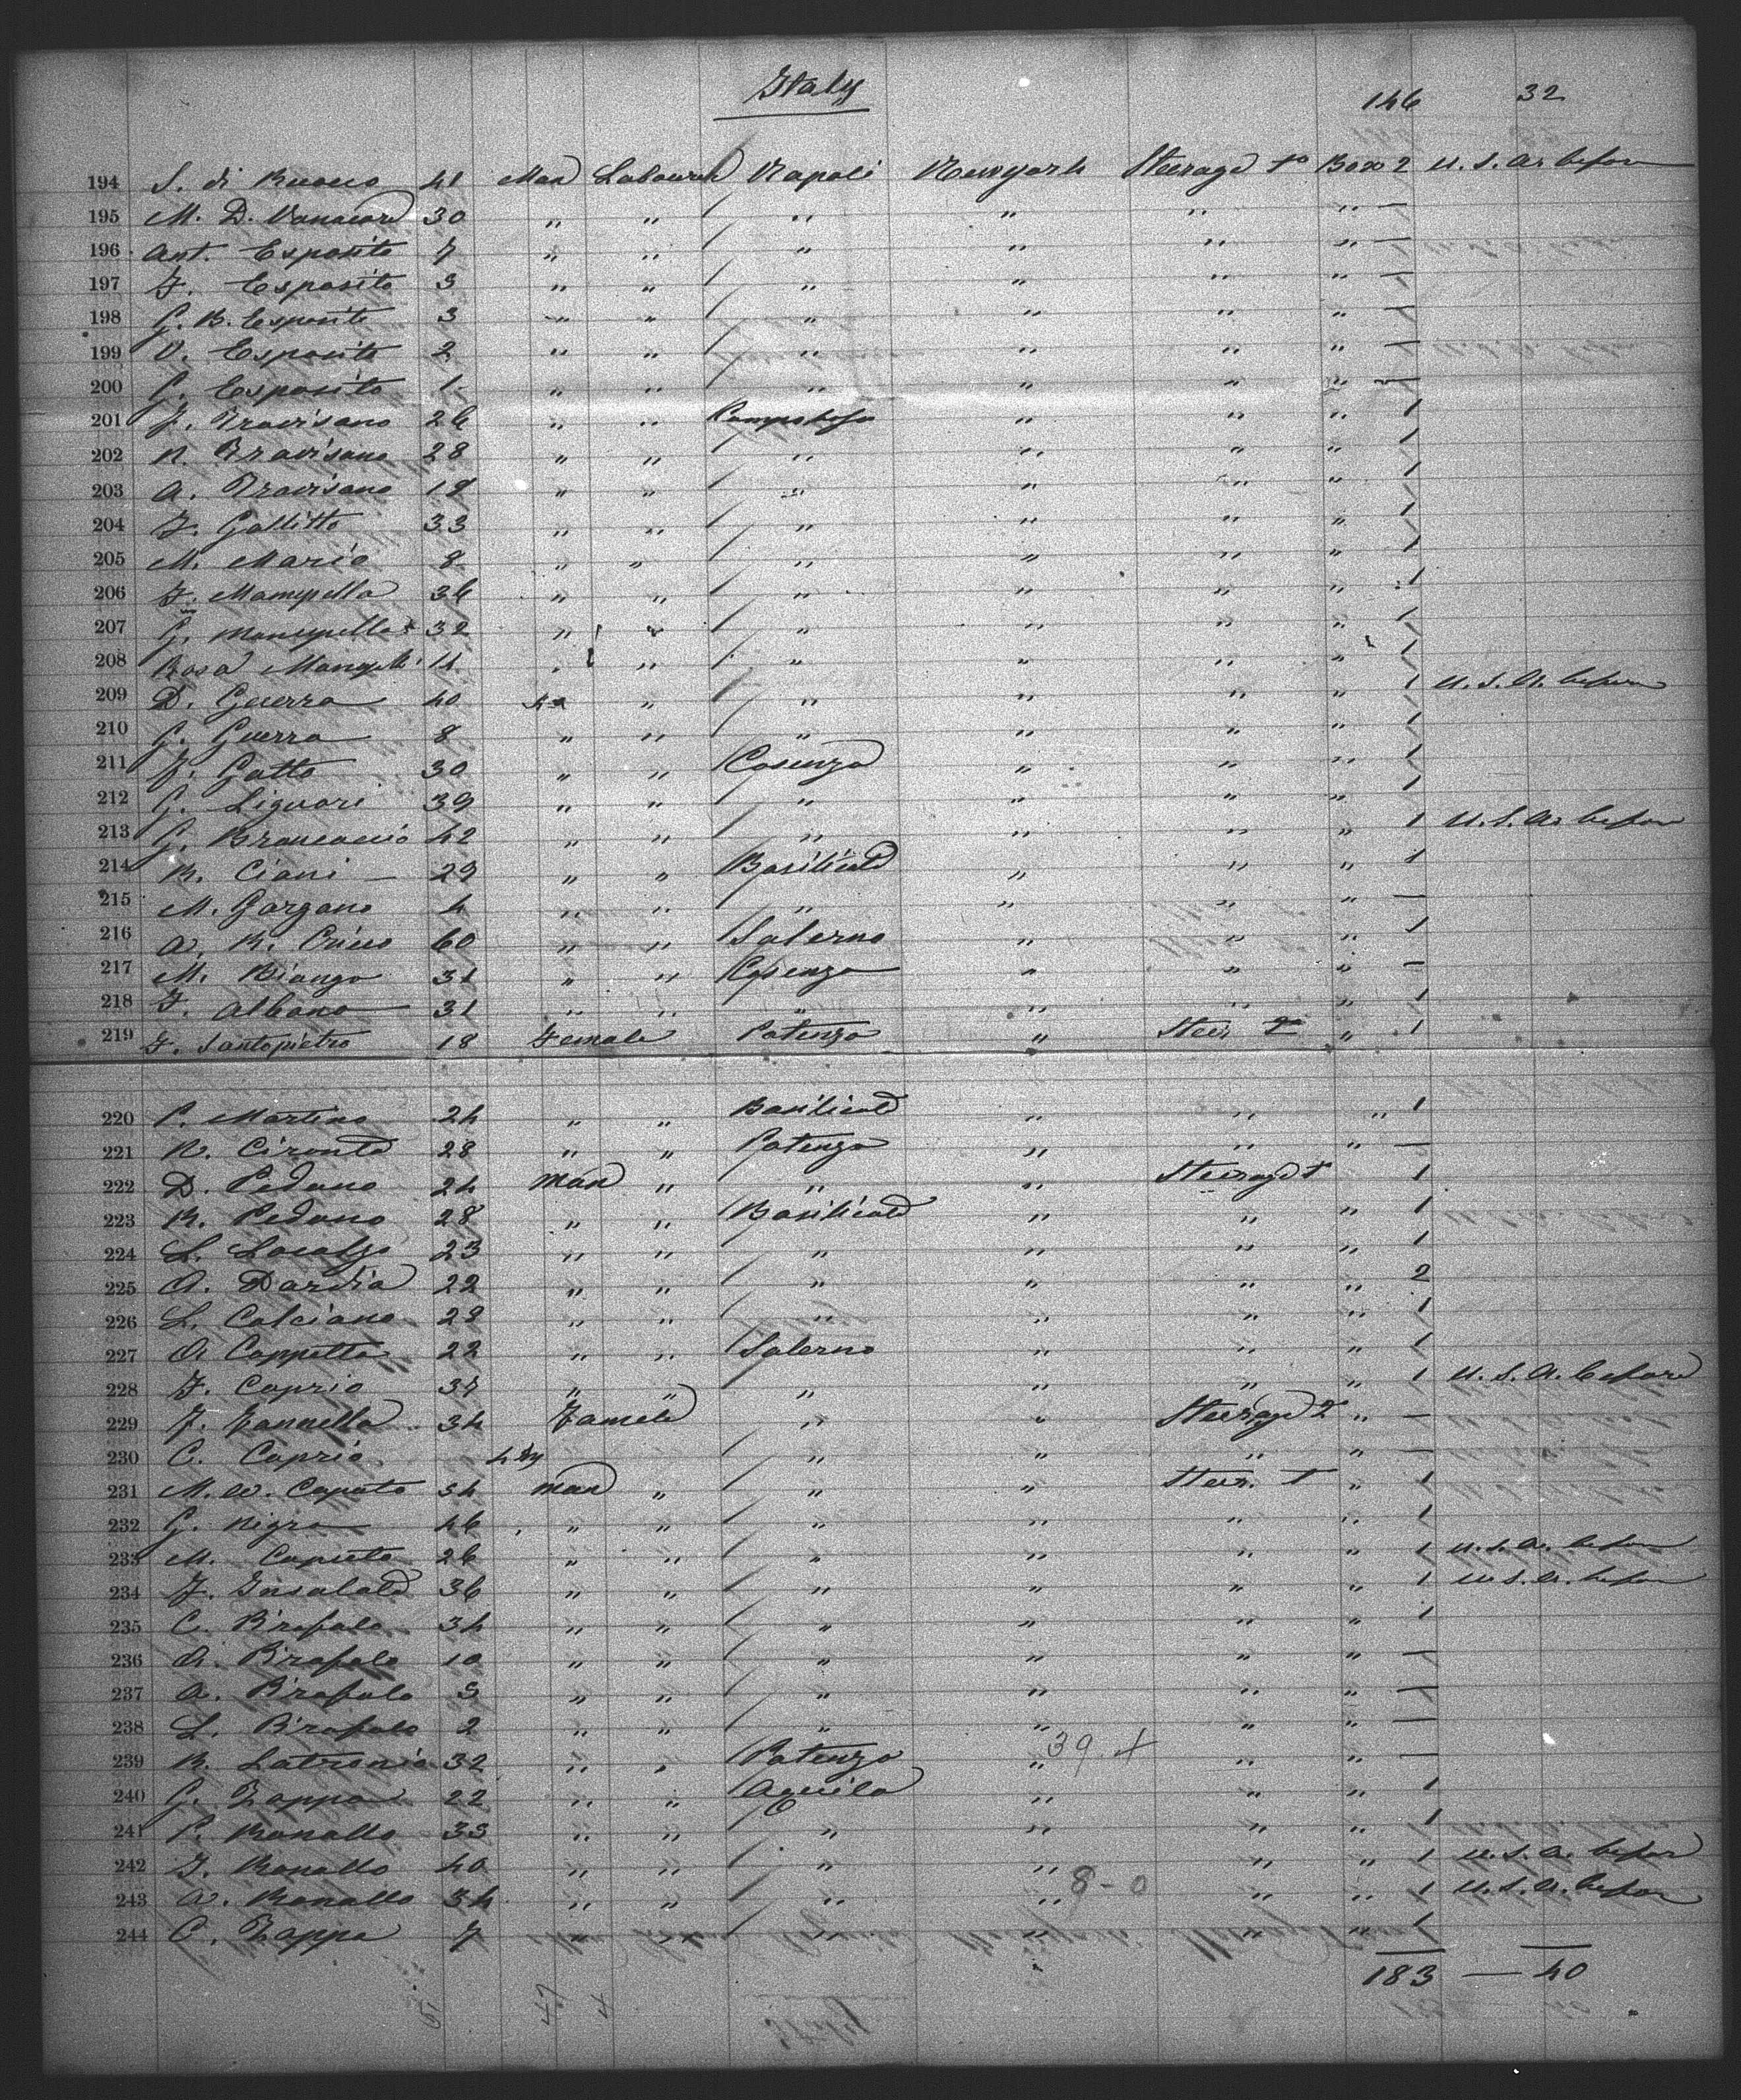 Italy
146 32
194 S. di Buono 41 Man Labourer Napoli Newyork Steerage 1 Box 2 U.S.A. before
195 M. D. Vanacore 30 " " " " " " —
196 Ant. Esposito 7 " " " " " " —
197 F. Esposito 3 " " " " " " —
198 G. B. Esposito 3 " " " " " " —
199 V. Esposito 2 " " " " " " —
200 G. Esposito 1 " " " " " " —
201 F. Travisano 26 " " Campobasso " " " 1
202 N. Travisano 28 " " " " " " 1
203 A. Travisano 18 " " " " " " 1
204 F. Gallitto 33 " " " " " " 1
205 M. Mario 8 " " " " " " 1
206 F. Mampella 36 " " " " " " 1
207 G. 32 " " " " " " 1
208 Rosa 11 " " " " " " 1
209 D. Guerra 40 " " " " " 1 U.S.A. before
210 G. Guerra 8 " " " " " " 1
211 F. Gatto 30 " " Cosenza " " " 1
212 G. Liguori 39 " " " " " " 1
213 G. Brancaccio 42 " " " " " " 1 U.S.A. before
214 R. Ciani — 29 " " Basilicata " " " 1
215 M. Gargano 4 " " " " " " —
216 A. R. 60 " " Salerno " " " 1
217 M. Biango 31 " " Cosenza " " " —
218 F. Albano 31 " " " " " " 1
219 F. Santopietro 18 Female Potenza " Steer 2 " 1
220 P. Martino 24 " " Basilicata " " " 1
221 R. 28 " " Potenza " " " —
222 D. Pedano 24 Man " " " Steerage 1 1
223 R. Pedano 28 " " Basilicata " " " 1
224 L. Localzo 23 " " " " " " 1
225 A. Dardia 22 " " " " " " 2
226 L. Calciano 28 " " " " " " 1
227 A. Cappetta 22 " " Salerno " " " 1
228 F. Caprio 37 " " " " " " 1 U.S.A. before
229 F. Iannella 34 Famele " " Steerage 2 " —
230 C. Caprio " " " " —
231 M. W. Caputo 34 Man " " " Steer. 1 " 1
232 G. Nigro 46 " " " " " " 1
233 M. Caputo 26 " " " " " " 1 U.S.A. before
234 F. Insalata 36 " " " " " " 1 U.S.A. before
235 C. Birofalo 34 " " " " " " 1
236 A. Birofalo 10 " " " " " " —
237 A. Birofalo 3 " " " " " " —
238 L. Birofalo 2 " " " " " " —
239 R. Latronia 32 " " Potenza " 39 " " —
240 G. Zappa 22 " " Aquila " " " 1
241 P. Ranallo 33 " " " " " " 1
242 F. Ranallo 40 " " " " " " 1 U.S.A. before
243 A. Ranallo 34 " " " " 8 - 0 " " 1 U.S.A. before
244 C. Zappa 7 " " " " " " 1
183 — 40